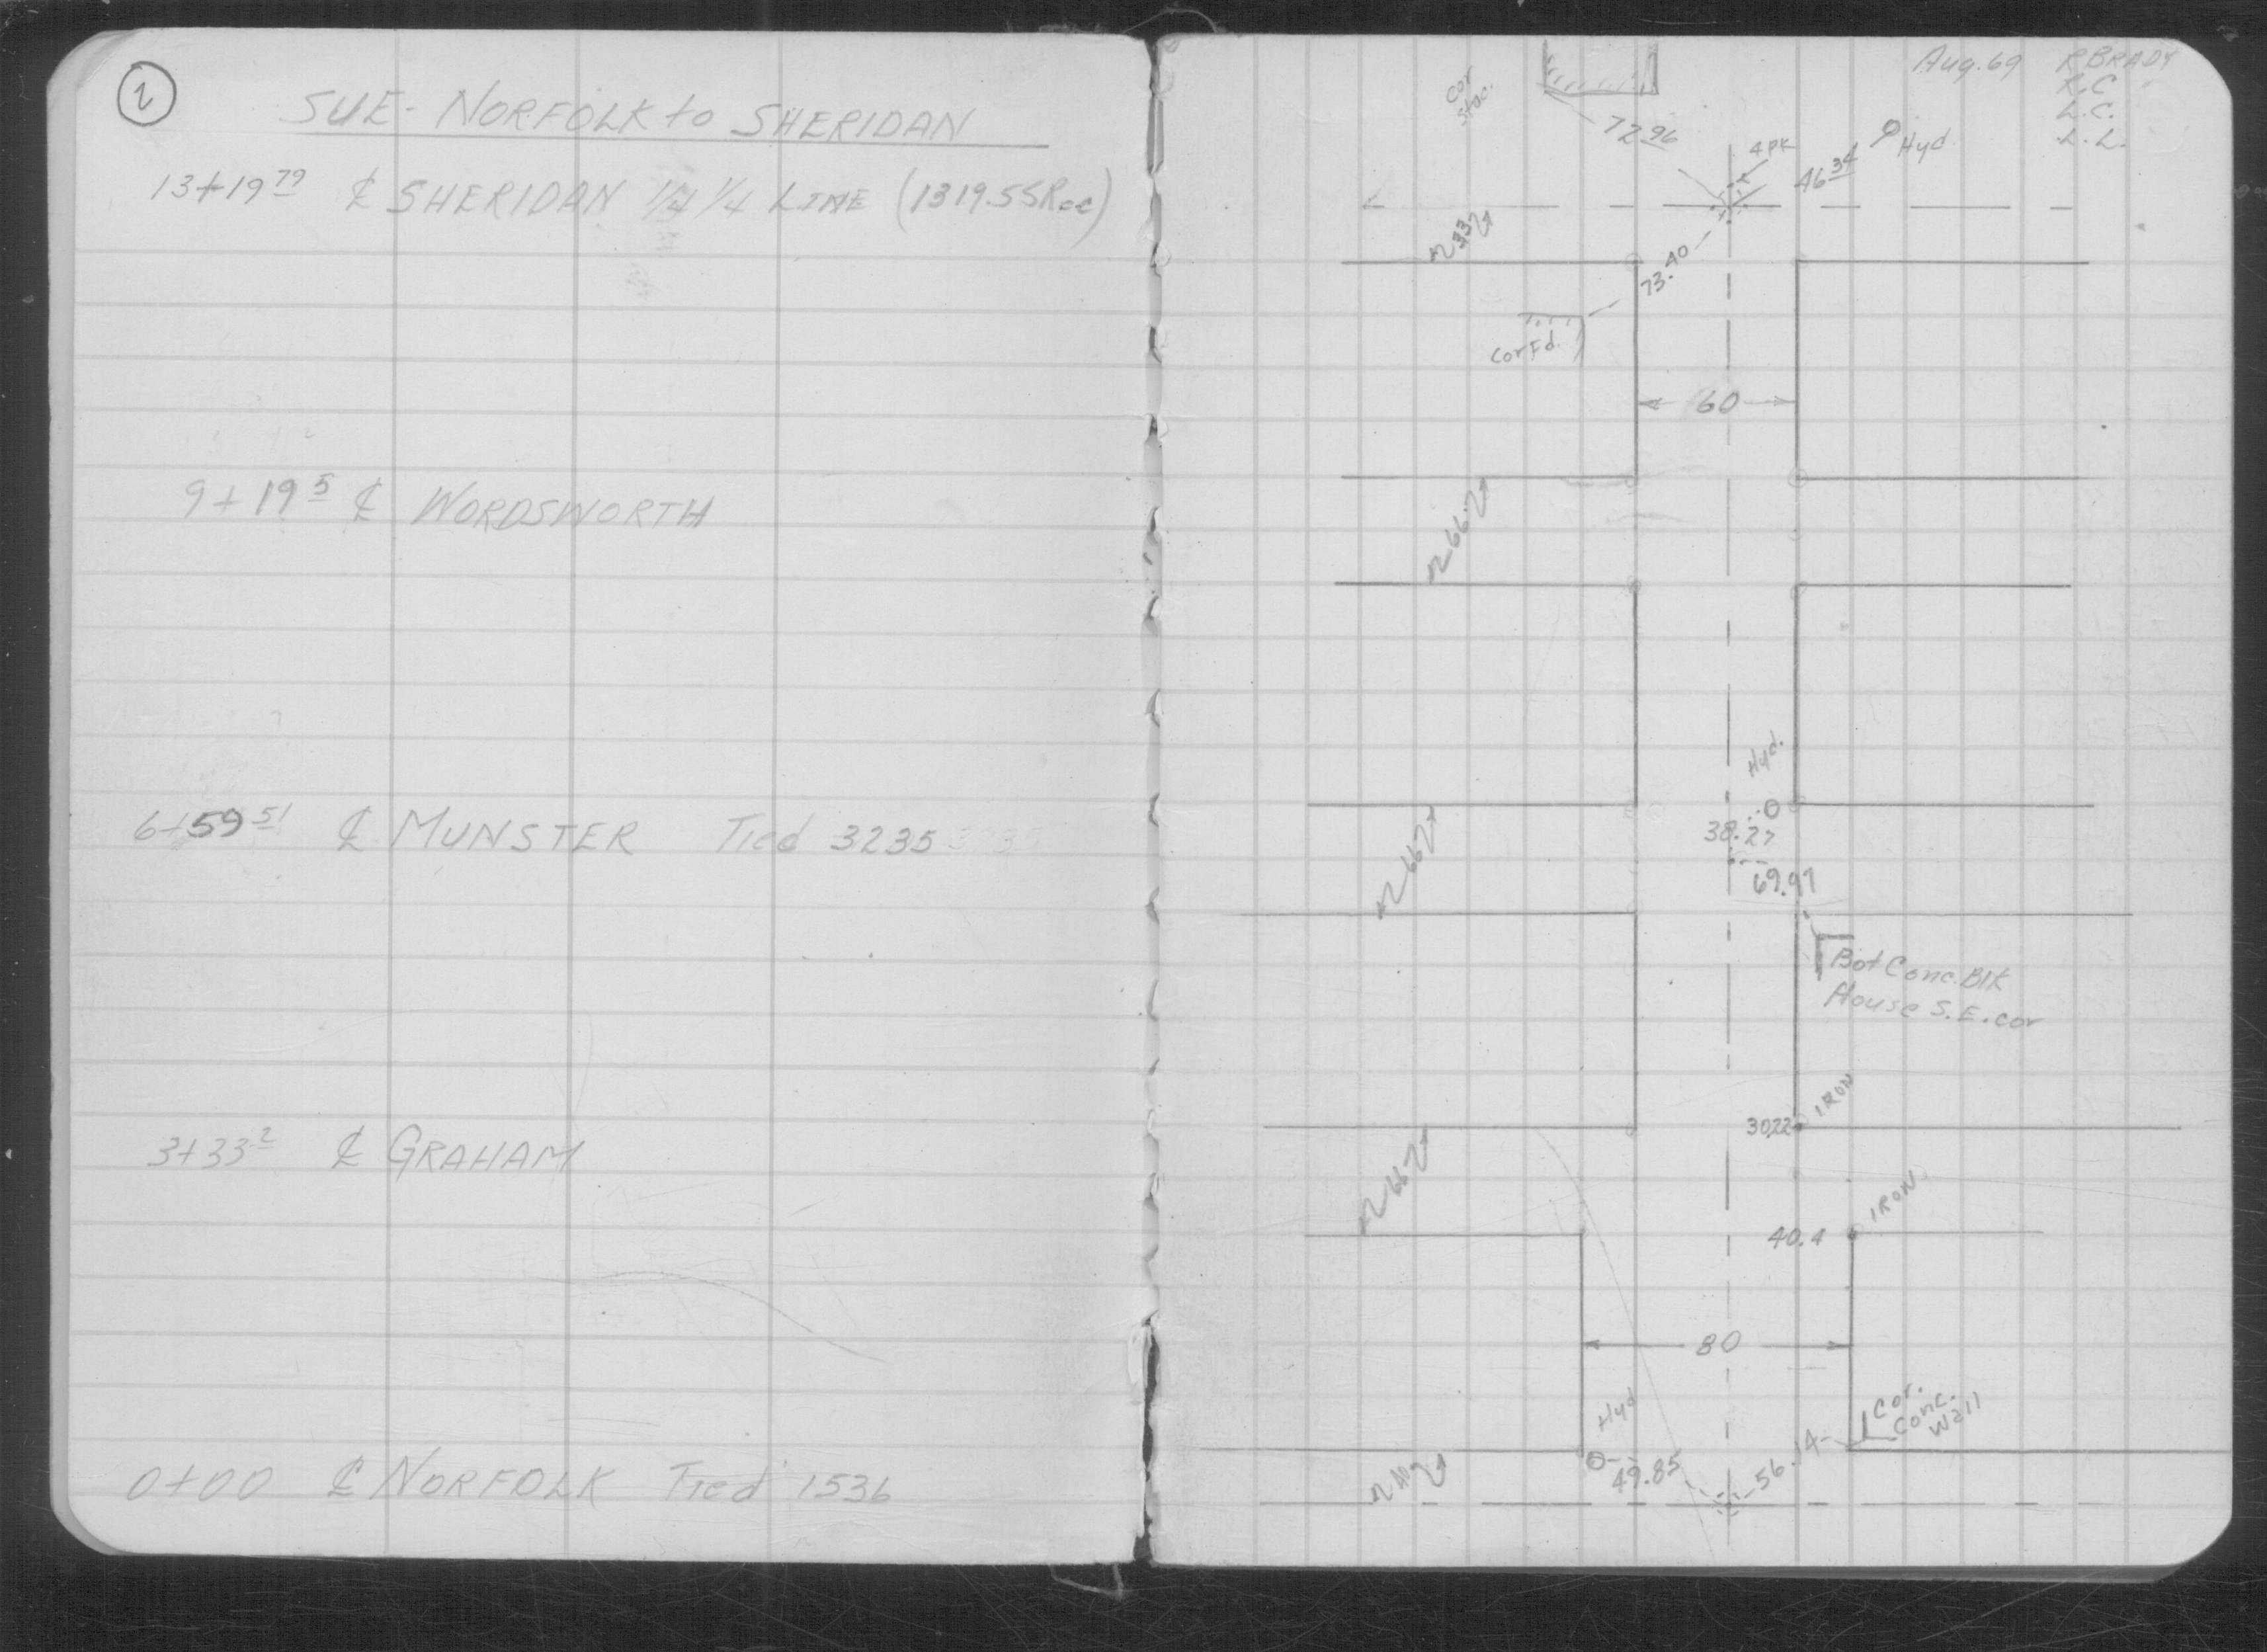 2
SUE - NORFOLK to SHERIDAN
13+19 79 ℄ SHERIDAN 1/4 1/4 LINE (1319.55 Rec)
9+19 5 ℄ WORDSWORTH
6+59 51 ℄ MUNSTER Tied 3235
3+33 2 ℄ GRAHAM
0+00 ℄ NORFOLK Tied 1536
Aug. 69 R BRADY
R.C
L.C.
L.L.
Cor
Stac.
72.96
4 PK
46 34
Hyd
33
73.40
Cor Fd.
60
66
Hyd.
38.27
66
69.97
Bot Conc. Blk
House S.E. cor
IRON
30.22
66
IRON
40.4
80
Hyd
Cor.
Conc.
Wall
40
49.85
56.14